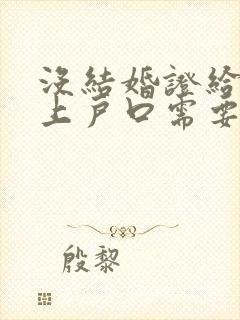 沒結婚證給
上戶口需要
殷黎